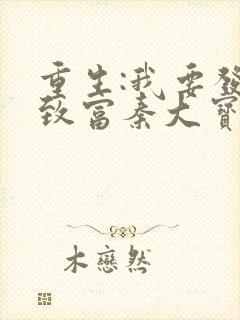 重生:我要發
致富秦大寶
木戀然